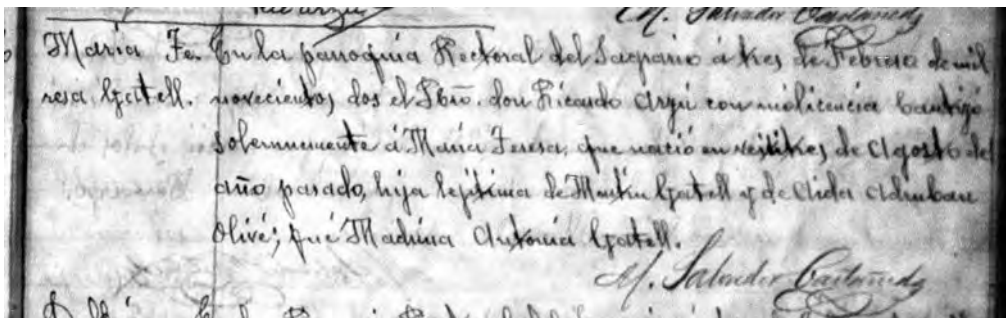 M. Salvador Castañeda
María Te- En la parroquia Rectoral del Sagrario á tres de Febrero de mil
resa Gatell. novecientos dos el Pbro. don Ricardo Arzú con mi licencia bautizó
solemnemente á María Teresa, que nació en veintitres de Agosto del
año pasado, hija lejitima de Martin Gatell y de Aida
Olivé; fué Madrina Antonia Gatell.
M. Salvador Castañeda